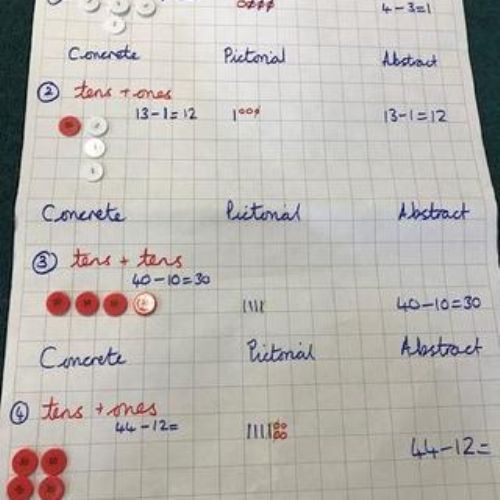 4-3=1
Concrete Pictorial Abstract
② tens + ones
13-1=12 13-1=12
Concrete Pictorial Abstract
③ tens + tens
40-10=30
40-10=30
Concrete Pictorial Abstract
④ tens + ones
44-12=
44-12=